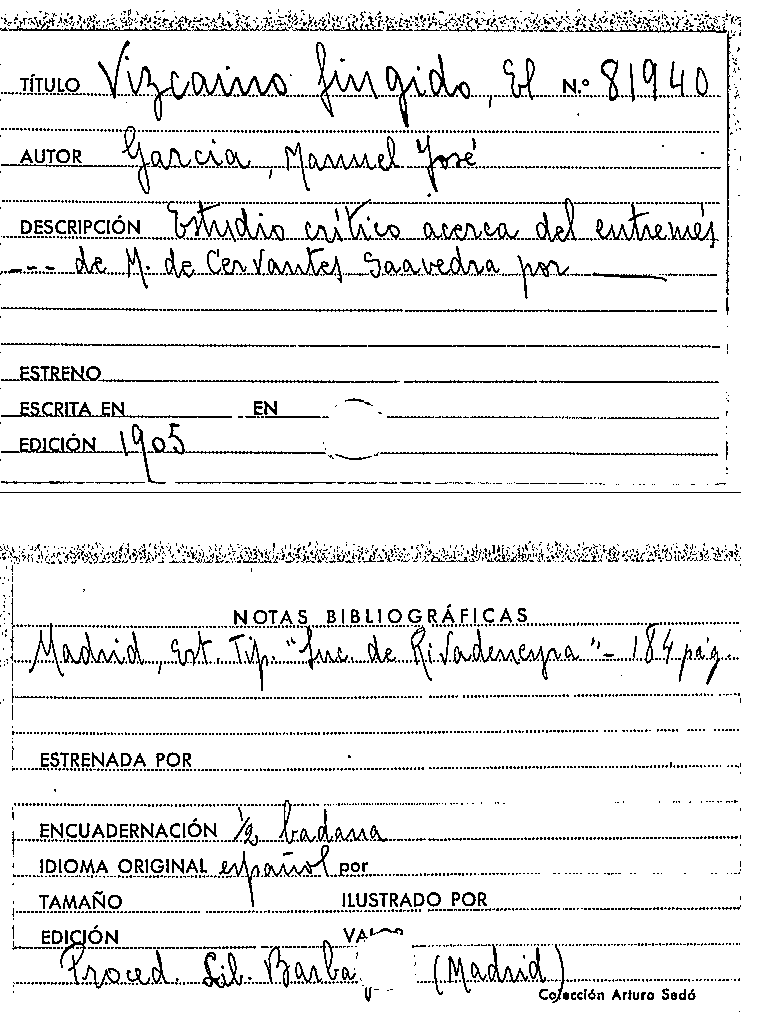 TÍTULO Vizcaino fingido, El N.º 81940
AUTOR Garcia, Manuel José
DESCRIPCIÓN Estudio crítico acerca del entremés
--- de M. de Cervantes Saavedra por ———
ESTRENO
ESCRITA EN EN
EDICIÓN 1905
NOTAS BIBLIOGRÁFICAS
Madrid, Est. Tip. "Suc. de Rivadeneyra" - 184 pág.
ESTRENADA POR
ENCUADERNACIÓN 1/2 badana
IDIOMA ORIGINAL español por
TAMAÑO ILUSTRADO POR
EDICIÓN
Proced. Lib. (Madrid)
Colección Arturo Sedó